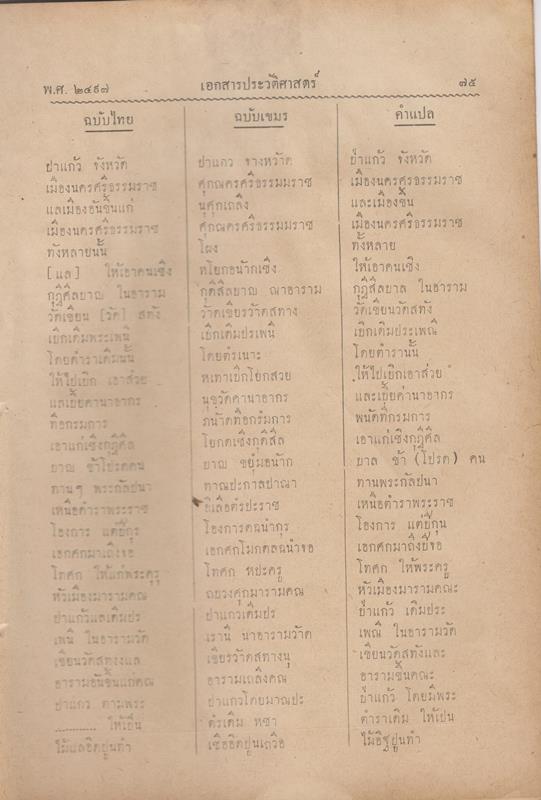 พ.ศ. ๒๔๙๗ เอกสารประวัติศาสตร์ ๗๕
ฉบับไทย
ป่าแก้ว จังหวัด
เมืองนครศรีธรรมราช
แลเมืองอันขึ้นแก่
เมืองนครศรีธรรมราช
ทังหลายนั้น
[ แล ] ให้เอาคนเชิง
กุฎิศีลยาญ ในอาราม
วัดเขียน [วัด] สทัง
เบิกเดิมพระเพนี
โดยตำราเดิมนั้น
ให้ไปเบิก เอาส่วย
แลเบี้ยค่านาอากร
ที่กรมการ
เอาแก่เชิงกุฎิศีล
ยาญ ข้าโปรดคน
ทานๆ พระกัลปนา
เหนือตำราพระราช
โองการ แต่ยี่กุร
เอกศักมาเถิงขอ
โทศก ให้แก่พระครู
หัวเมืองมารามคณ
ป่าแก้วแลเดิมปร
เพนี ในอารามวัด
เขียนวัดสทังงแล
อารามอันขึ้นแก่คณ
ป่าแกว ตามพระ
............ ให้เย็น
ไม้แลอิดปูนทำ
ฉบับเขมร
ปาแกว จางหวาัด
ศุกณครศรีธรรมมราช
นุศุกเถลิง
ศุกณครศรีธรรมมราช
โผง
หโยกอนักเชิง
กุดิสีลยาญ ณาอาราม
วาัดเขียรวาัดสทาง
เบิกเดิมปรเพนี
โดยตํรเนาะ
หเทาเบิกโยกสวย
นุชวัดคานาอากร
ภนาัดทีอกรํมการ
โยกตเชิงกุดิสีล
ยาญ ขยุํมอนัก
ทาณปะกาลปาณา
อีเลือตํรปะราช
โองการดฉนำกุร
เอกศกโมกดลฉนำจอ
โทศก หยะครู
ถยวงศุกมารามคณ
ปาแกวเดิมปร
เรานี นาอารามวาัด
เขียรวาัดสทางนุ
อารามเถลิงคณ
ปาแกวโดยมาณปะ
ตํรเดิม หซา
เชืออิดปูนเถวือ
คำแปล
ป่าแก้ว จังหวัด
เมืองนครศรีธรรมราช
และเมืองขึ้น
เมืองนครศรีธรรมราช
ทั้งหลาย
ให้เอาคนเชิง
กุฎิศีลยาล ในอาราม
วัดเขียนวัดสทัง
เบิกเดิมประเพณี
โดยตำรานั้น
ให้ไปเบิกเอาส่วย
และเบี้ยค่านาอากร
พนัดที่กรมการ
เอาแก่เชิงกุฎีศีล
ยาล ข้า (โปรด) คน
ทานพระกัลปนา
เหนือตำราพระราช
โองการ แต่ยี่กุน
เอกศกมาถึงปีจอ
โทศก ให้พระครู
หัวเมืองมารามคณะ
ป่าแก้ว เดิมประ
เพณี ในอารามวัด
เขียนวัดสทังและ
อารามขึ้นคณะ
ป่าแก้ว โดยมีพระ
ตำราเดิม ให้เป็น
ไม้อิฐปูนทำ